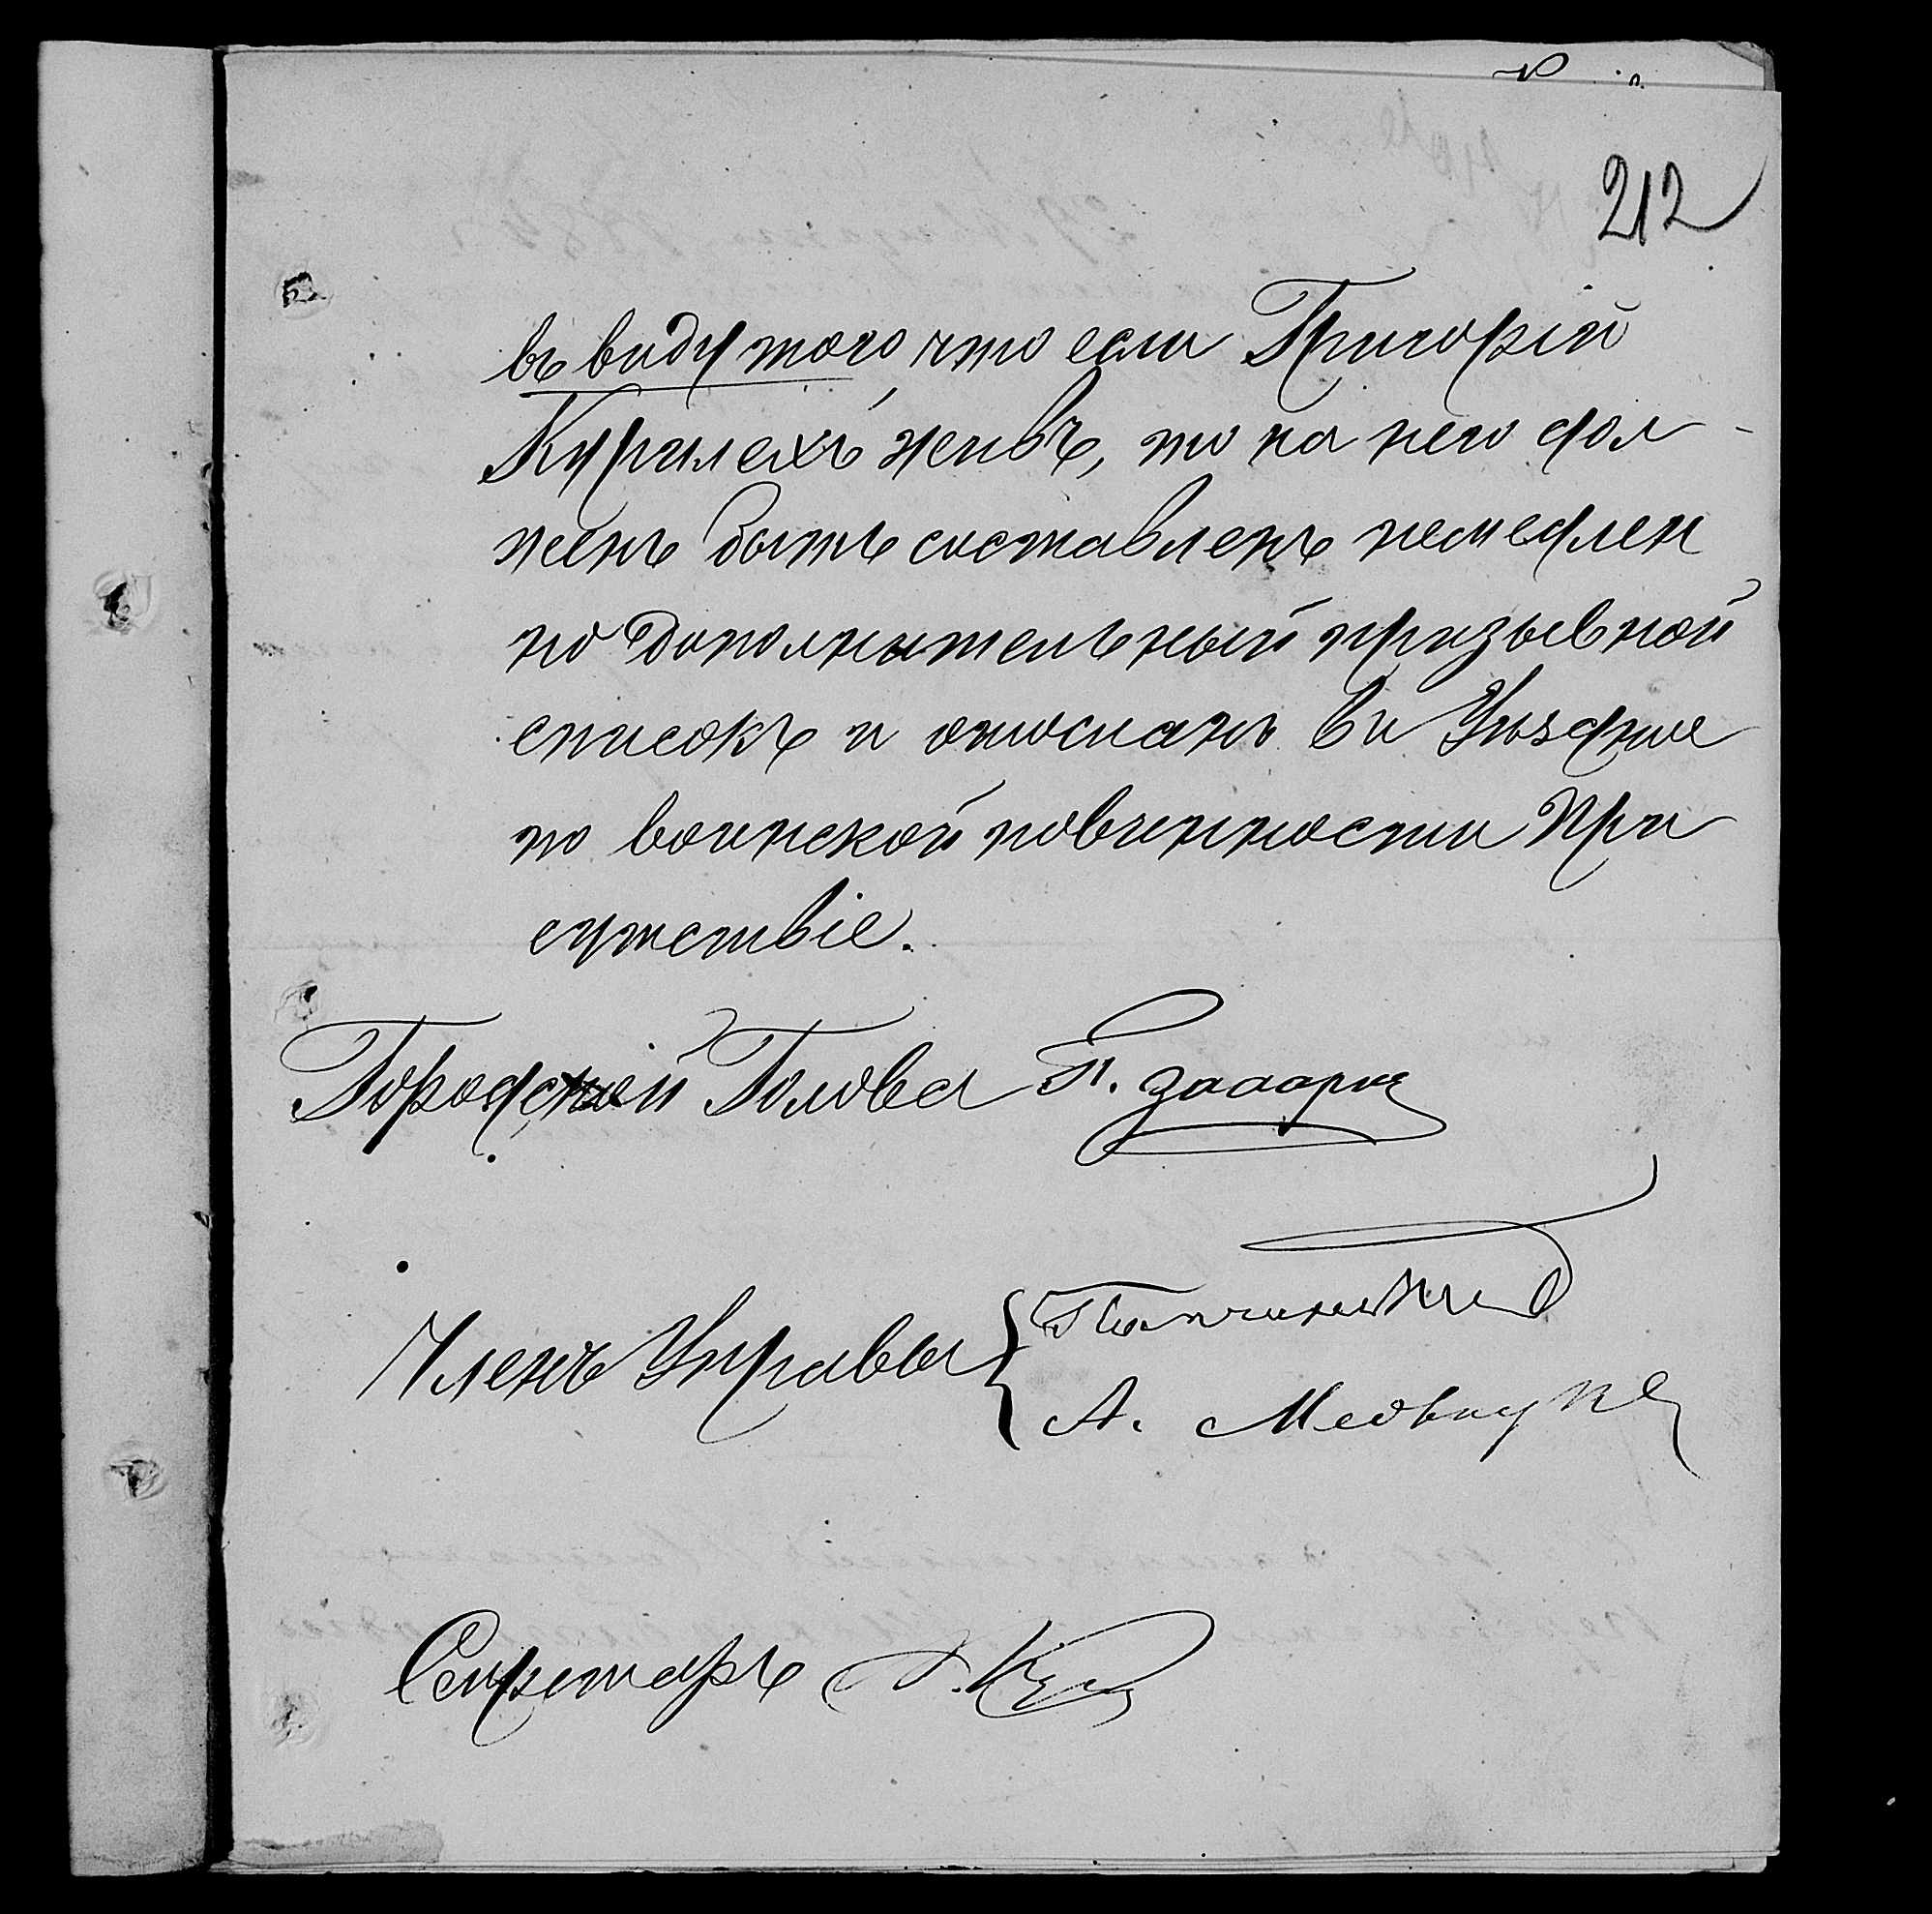 212
въ виду того, что если Григорій
Курилехъ живъ, то на него дол-
женъ быть составленъ немедлен
но дополнительный призывной
списокъ и отосланъ въ Уѣздное
по воинской повинности При
сутствіе.
Городской Голова П.
Членъ Управы
А.
Секретарь